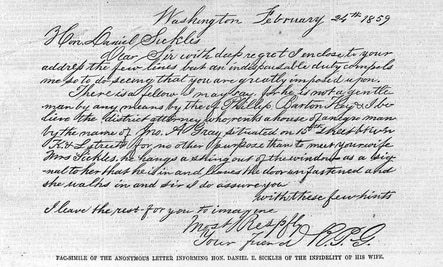 Washington February 24th 1859
Hon. Daniel Sickles
Dear Sir with deep regret I enclose to your
address the few lines but an indispensable duty compels
me so to do seeing that you are greatly imposed upon.
There is a fellow I may say for he is not a gentle
man by any means by the of Phillip Barton Key & I be
lieve the district attorney who rents a house of a negro man
by the name of Jno. A. Gray situated on 15th Street btwn
K. & L streets for no other purpose than to meet your wife
Mrs Sickles, he hangs a string out of the window as a sig
nal to her that he is in and leaves the door unfastened and
she walks in and sir I do assure you
with these few hints
I leave the rest for you to imagine
Most Respfly
Your friend R. P. G.
FAC-SIMILE OF THE ANONYMOUS LETTER INFORMING HON. DANIEL E. SICKLES OF THE INFIDELITY OF HIS WIFE.